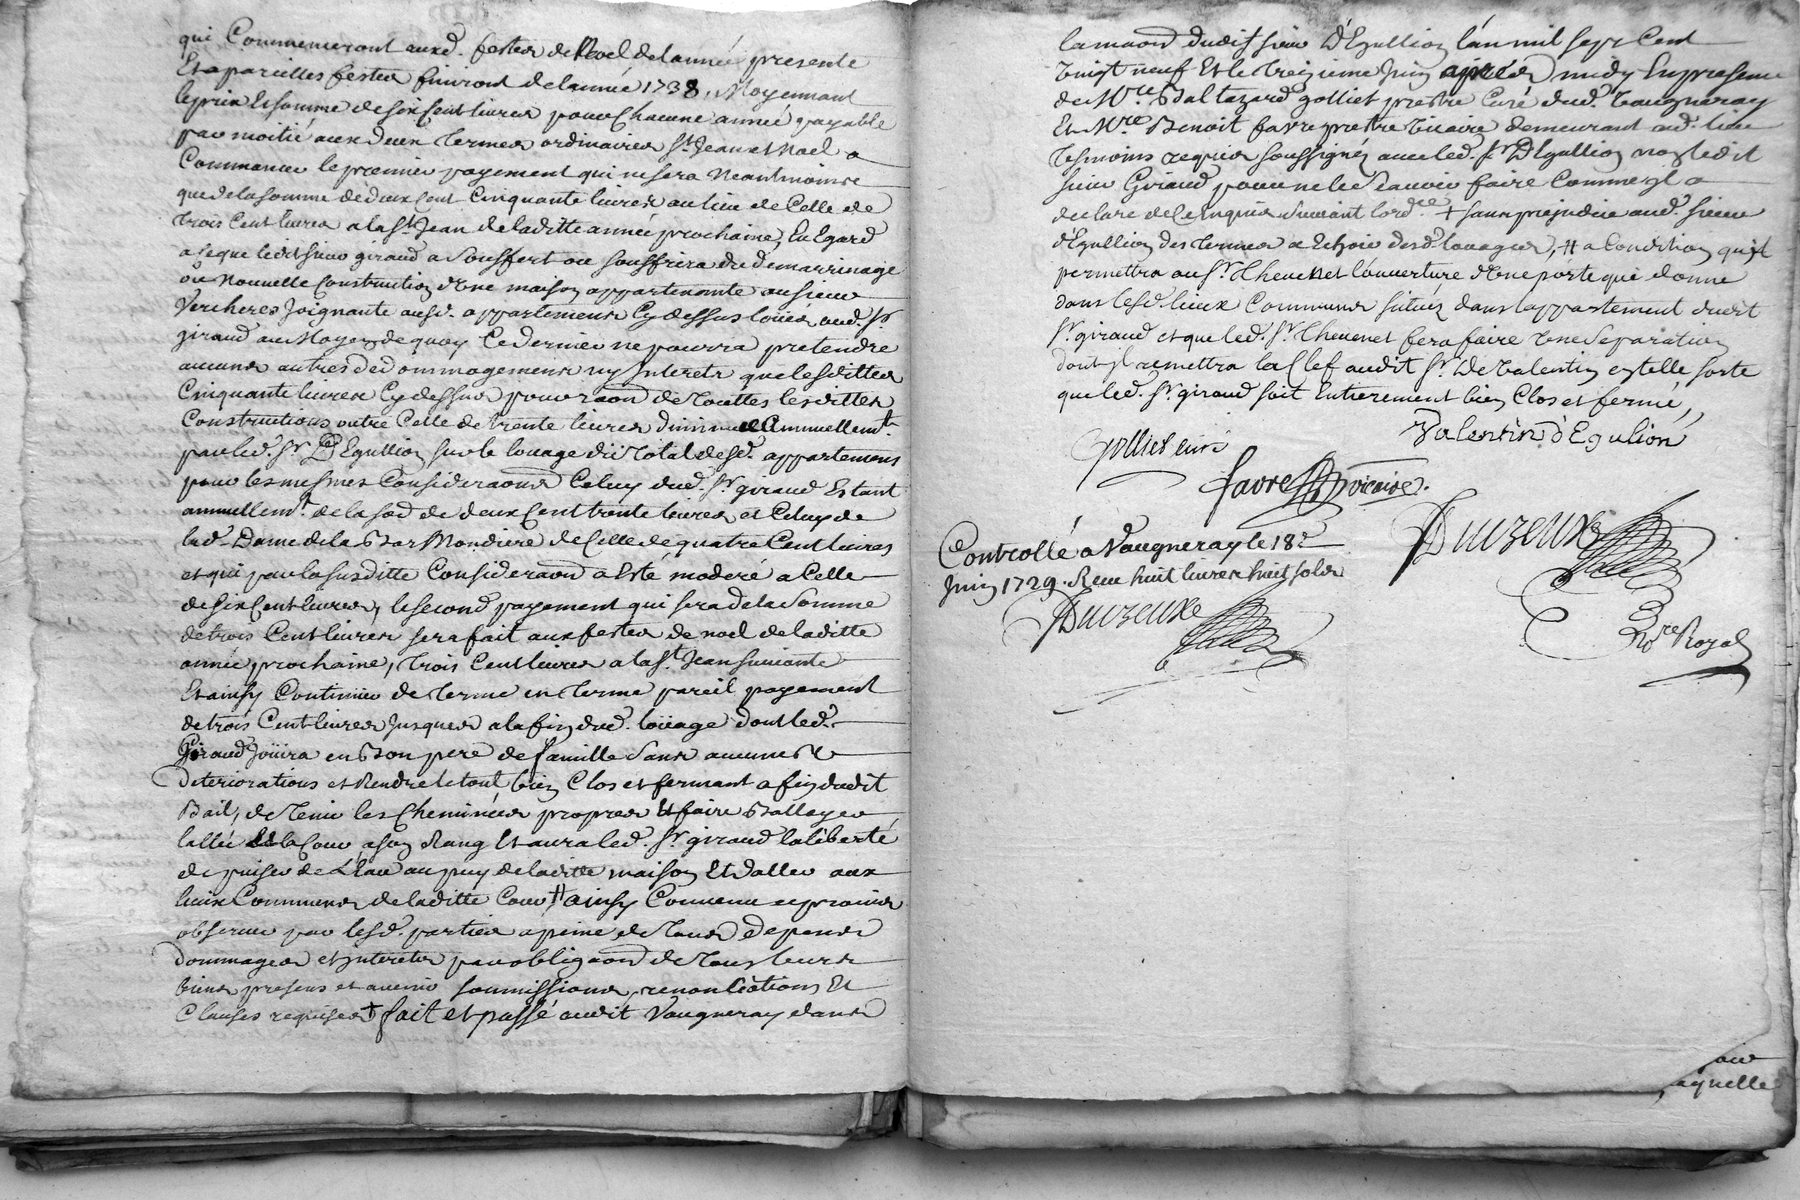 qui Commenceront auxd. festes de Noel de lannée presente
Et a pareilles festes finiront de lannée 1738, Moyennant
le prix Et somme de six Cent livres pour Chacune année payable
par moitié aux deux termes ordinaires St Jean et Noel a
Commancer le premier payement qui ne sera Neantmoins
que de la somme de deux Cent Cinquante livres au lieu de Celle de
trois Cent livres a la St Jean de laditte année prochaine, Eu Egard
a ce que ledit sieur giraud a souffert ou souffrira du
ou Nouvelle Construction d'Une maison appartenante au sieur
Vercheres Joignante ausd. appartements Cy dessus loués aud. Sr
giraud au Moyen de quoy Ce dernier ne pourra pretendre
aucuns autres dedommagements ny Interets que lesdittes
Cinquante livres Cy dessus pour raon de touttes lesdittes
Constructions outre Celle de trente livres diminuée Annuellemt
par led. Sr D'Egullion sur le louage du total desd. appartemens
pour les mesmes Consideraons Celuy dud. Sr giraud Estant
annuellemt de la soe de deux Cent trente livres et Celuy de
lad. Dame de la de Celle de quatre Cent livres
et qui par la susditte Consideraon a Esté moderé a Celle
de six Cent livres, le second payement qui sera de la somme
de trois Cent livres sera fait aux festes de noel de laditte
année prochaine, trois Cent livres a la St Jean suivante
Et ainsy Continuer de terme en terme pareil payement
de trois Cent livres Jusques a la fin dud. loüage dont led.
Giraud Joüira en bon pere de famille sans aucunes
deteriorations et Rendre le tout bien Clos et fermant a fin dudit
Bail, de tenir les Cheminées propres Et faire Ballayer
lallée Et la Cour a son Rang Et aura led. Sr giraud la liberté
de puiser de L'Eau au puy de laditte maison Et d'aller aux
lieux Communs de laditte Cour # ainsy Convenu et promis
observer par lesd. parties a peine de tous depens
dommages et interets par obligaon de tous leurs
biens presens et avenir soumissions, renonciations Et
Clauses requises † fait et passé audit Vaugneray dans
la maon dudit sieur D'Egullion l'an mil sept Cent
Vingt neuf Et le treizieme Juin apres midy En presence
de Mre Baltazard golliet prestre Curé dud. Vaugneray
Et Mre Benoit favre prestre Vicaire demeurant aud. lieu
tesmoins requis soussignéz avec led. Sr D'Egullion non ledit
sieur Giraud pour ne le sçavoir faire Comme Il a
declare de Ce Enquis suivant lordce † sans prejudice aud. sieur
d'Egullion des termes Echoie desd. louages, # a Condition quil
permettra au Sr Thevenet louverture d'Une porte que donne
dans lesd. lieux Communs situéz dans lappartement dudit
Sr giraud et que led. Sr Thevenet fera faire Une separation
dont Il remettra la Clef audit Sr De Valentin en telle sorte
que led. Sr giraud soit Entierement bien Clos et fermé,
Valentin d'Egulion
golliet curé
favre vicaire.
Controllé a Vaugneray le 18e
Juin 1729. Reçu huit livres huit sols
Duizeux
Duizeux
Nore Royal
aquelle